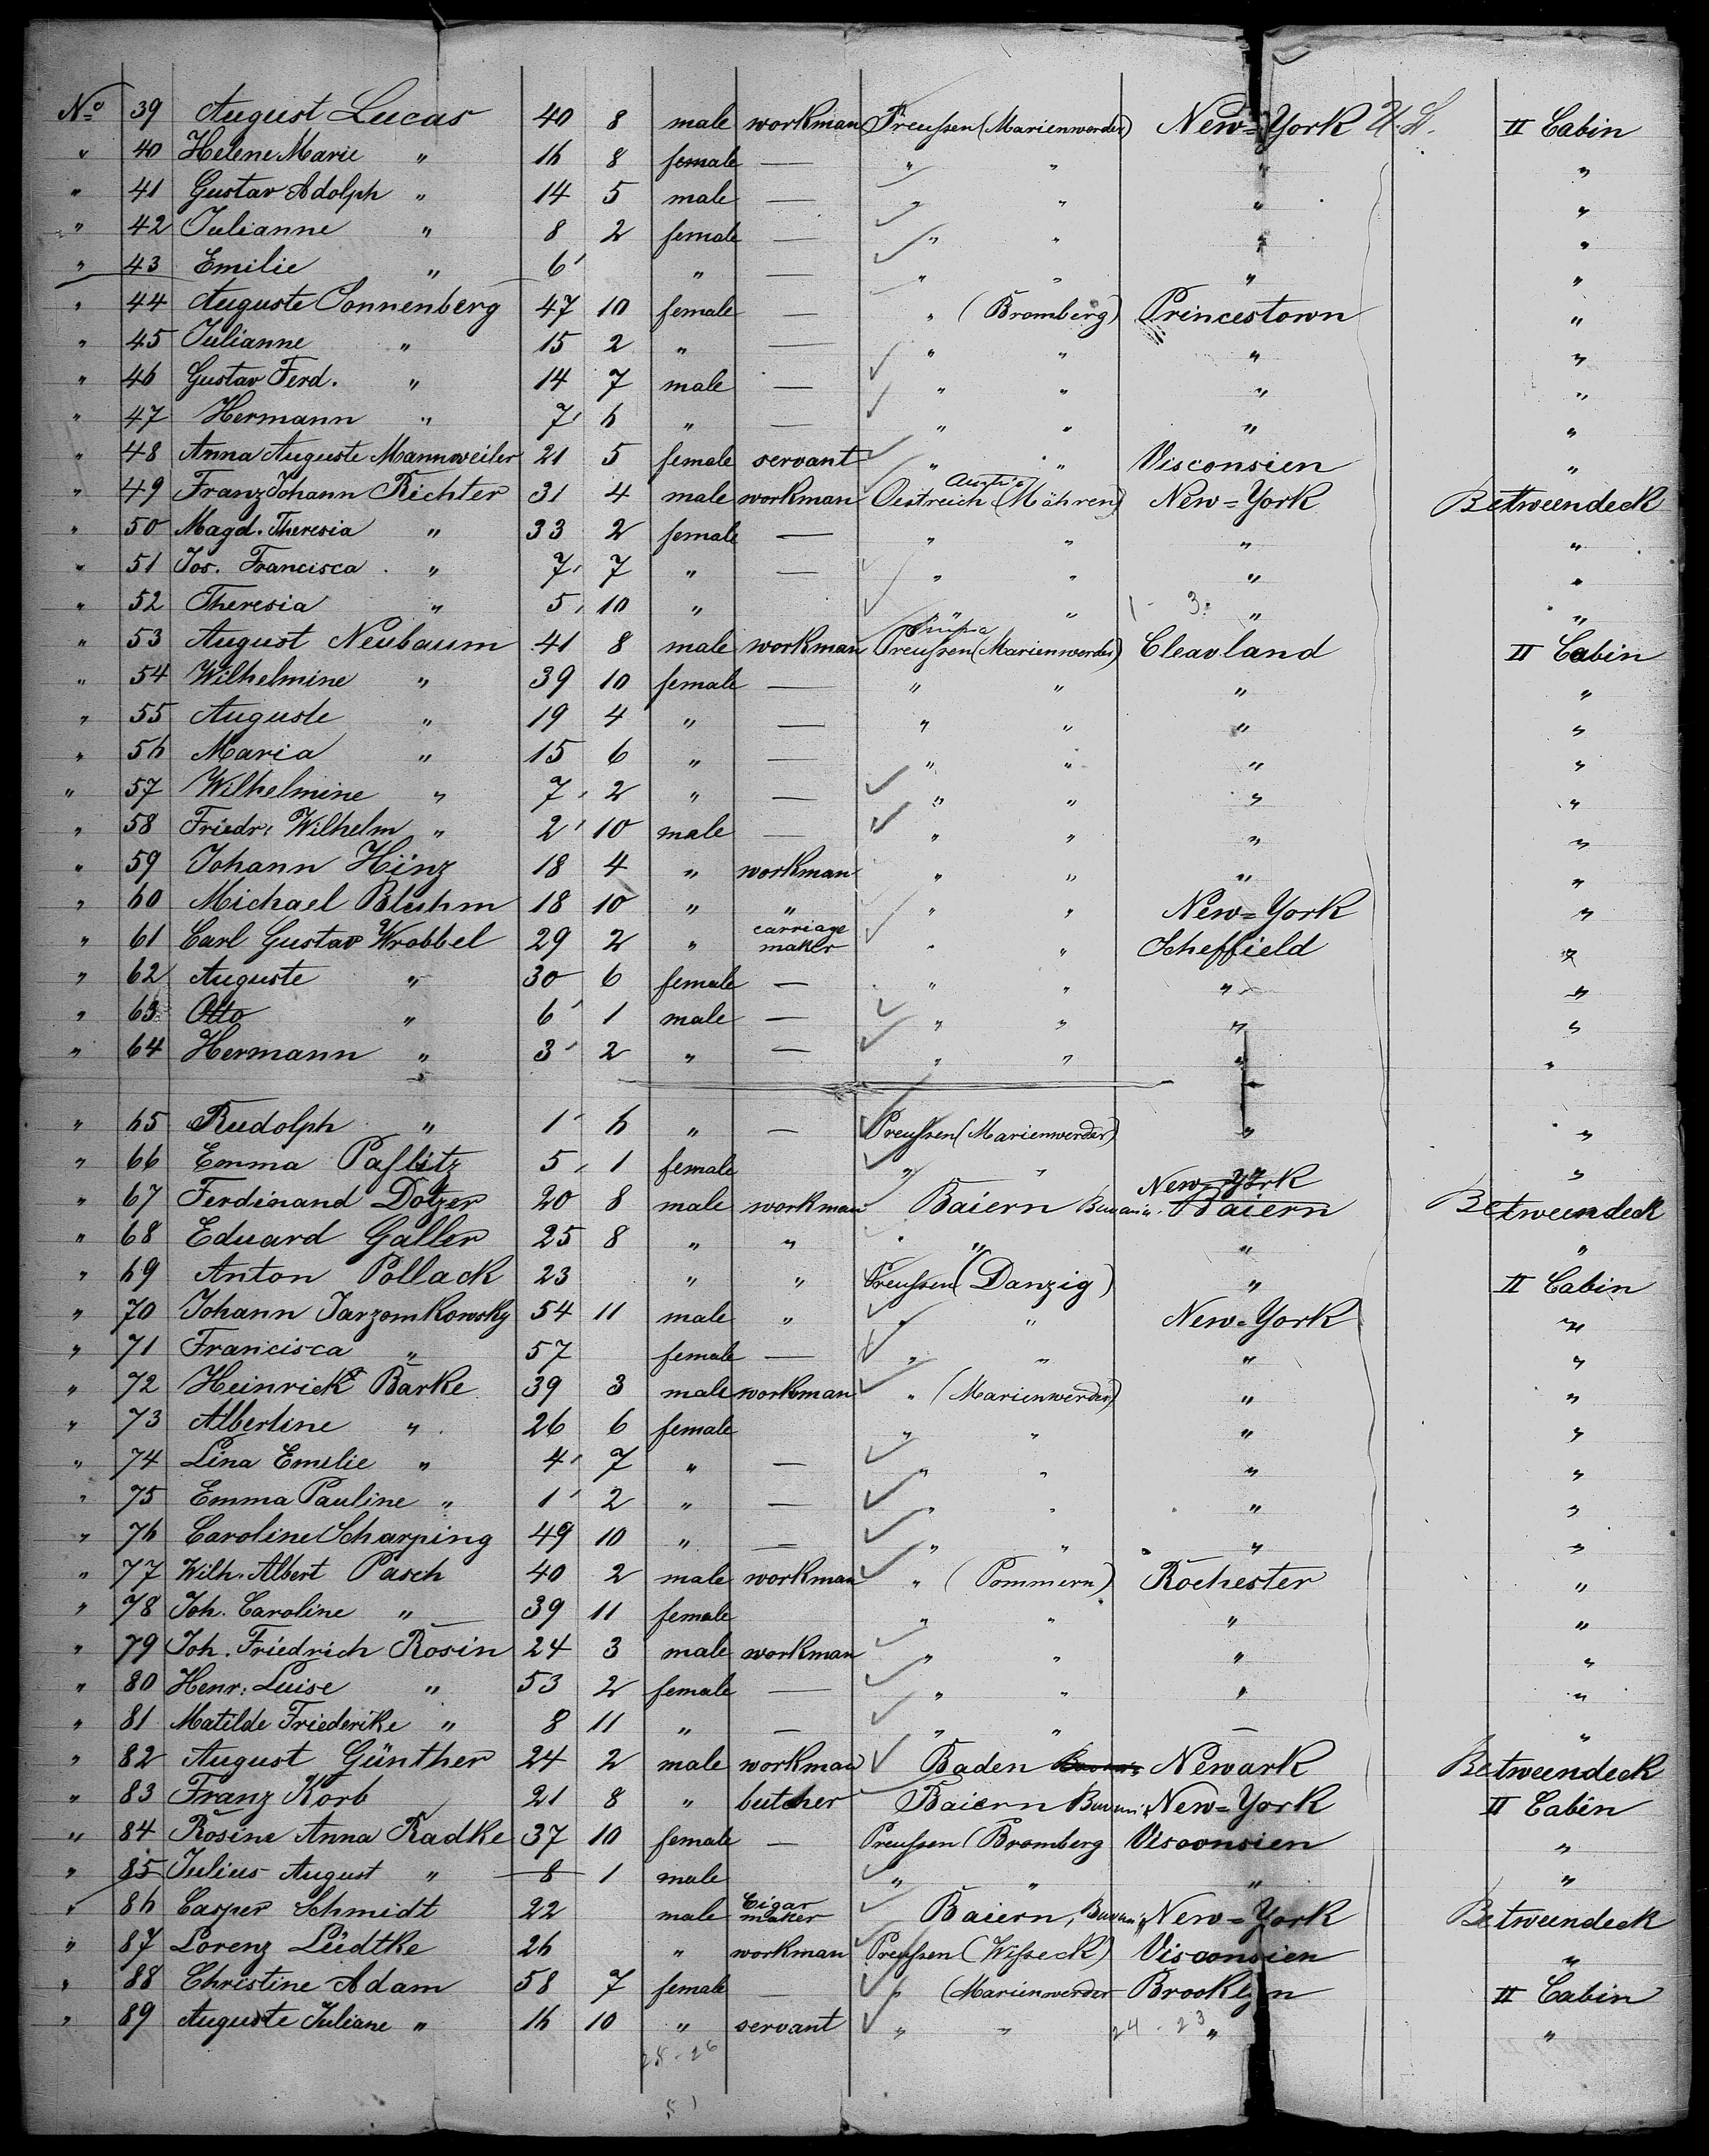 No 39 August Lucas 40 8 male workman Preußen (Marienwerder) New=York U.S. II Cabin
" 40 Helene Marie " 16 8 female — " " " "
" 41 Gustav Adolph " 14 5 male — " " " "
" 42 Julianne " 8 2 female — " " " "
" 43 Emilie " 6 " — " " " "
" 44 Auguste Sonnenberg 47 10 female — " (Bromberg) Princestown "
" 45 Julianne " 15 2 " — " " " "
" 46 Gustav Ferd. " 14 7 male — " " " "
" 47 Hermann " 7 6 " — " " " "
" 48 Anna Auguste Mannweiler 21 5 female servant " " Visconsien "
" 49 Franz Johann Richter 31 4 male workman Oestreich Austria (Mähren) New=York Betweendeck
" 50 Magd. Theresia " 33 2 female — " " " "
" 51 Jos. Francisca " 7 7 " — " " " "
" 52 Theresia " 5 10 " " " 1 - 3. " "
" 53 August Neubaum 41 8 male workman Preußen (Marienwerder) Cleavland II Cabin
" 54 Wilhelmine " 39 10 female — " " " "
" 55 Auguste " 19 4 " — " " " "
" 56 Maria " 15 6 " — " " " "
" 57 Wilhelmine " 7 2 " — " " " "
" 58 Friedr. Wilhelm " 2 10 male — " " " "
" 59 Johann Hinz 18 4 " workman " " " "
" 60 Michael Bluhm 18 10 " " " " New=York "
" 61 Carl Gustav Wrobbel 29 2 " carriage maker " " Scheffield "
" 62 Auguste " 30 6 female — " " " "
" 63 Otto " 6 1 male — " " " "
" 64 Hermann " 3 2 " — " " " "
" 65 Rudolph " 1 6 " — Preußen (Marienwerder) " "
" 66 Emma Paßlitz 5 1 female " " "
" 67 Ferdinand Dotzer 20 8 male workman Baiern Bavaria New=York Baiern Betweendeck
" 68 Eduard Galler 25 8 " " " " "
" 69 Anton Pollack 23 " " Preußen (Danzig) " II Cabin
" 70 Johann Jarzomkowsky 54 11 male " " " New=York "
" 71 Francisca " 57 female — " " " "
" 72 Heinrich Barke 39 3 male workman " (Marienwerder) " "
" 73 Albertine " 26 6 female " " " "
" 74 Lina Emilie " 4 7 " — " " " "
" 75 Emma Pauline " 1 2 " — " " " "
" 76 Caroline Scharping 49 10 " — " " " "
" 77 Wilh. Albert Pasch 40 2 male workman " (Pommern) Rochester "
" 78 Joh. Caroline " 39 11 female " " " "
" 79 Joh. Friedrich Rosin 24 3 male workman " " " "
" 80 Henr. Luise " 53 2 female — " " " "
" 81 Matilde Friederike " 8 11 " — " " — "
" 82 August Günther 24 2 male workman Baden Newark Betweendeck
" 83 Franz Korb 21 8 " butcher Baiern Bavaria New=York II Cabin
" 84 Rosine Anna Radke 37 10 female — Preußen (Bromberg Visconsien "
" 85 Julius August " 8 1 male " " " "
" 86 Casper Schmidt 22 male Cigar maker Baiern, Bavaria New=York Betweendeck
" 87 Lorenz Lüdtke 26 " workman Preußen (Wißeck) Visconsien "
" 88 Christine Adam 58 7 female — " (Marienwerder Brooklyn II Cabin
" 89 Auguste Juliane " 16 10 " servant " " 24 - 23 " "
28 - 26